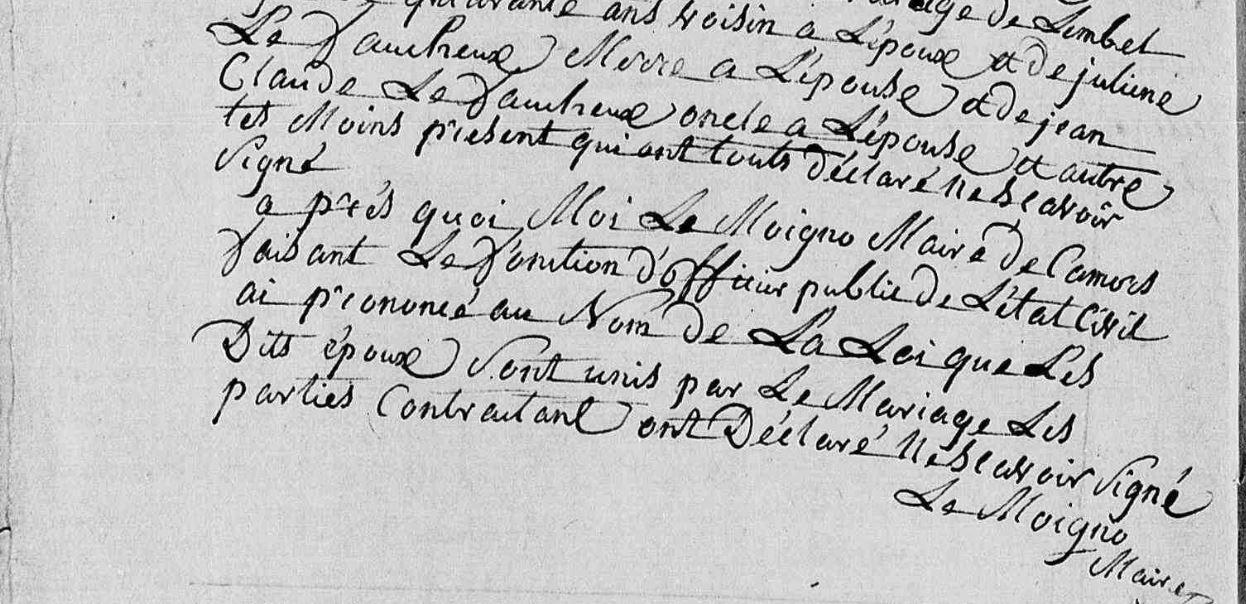 quarante ans voisin a L'époux et de juliene
Le Faucheux Merre a L'épouse et de jean
Claude Le Faucheux oncle a L'épouse et autre
tes Moins present qui ont touts déclaré ne Scavoir
Signé
a prés quoi Moi Le Moigno Maire de Camors
faisant Le fonction d'officier public de L'état Civil
ai prononcé au Nom de La Loi que Les
Dits époux Sont unis par Le Mariage Les
parties Contractant ont Déclaré ne Scavoir Signé
Le Moigno
Maire